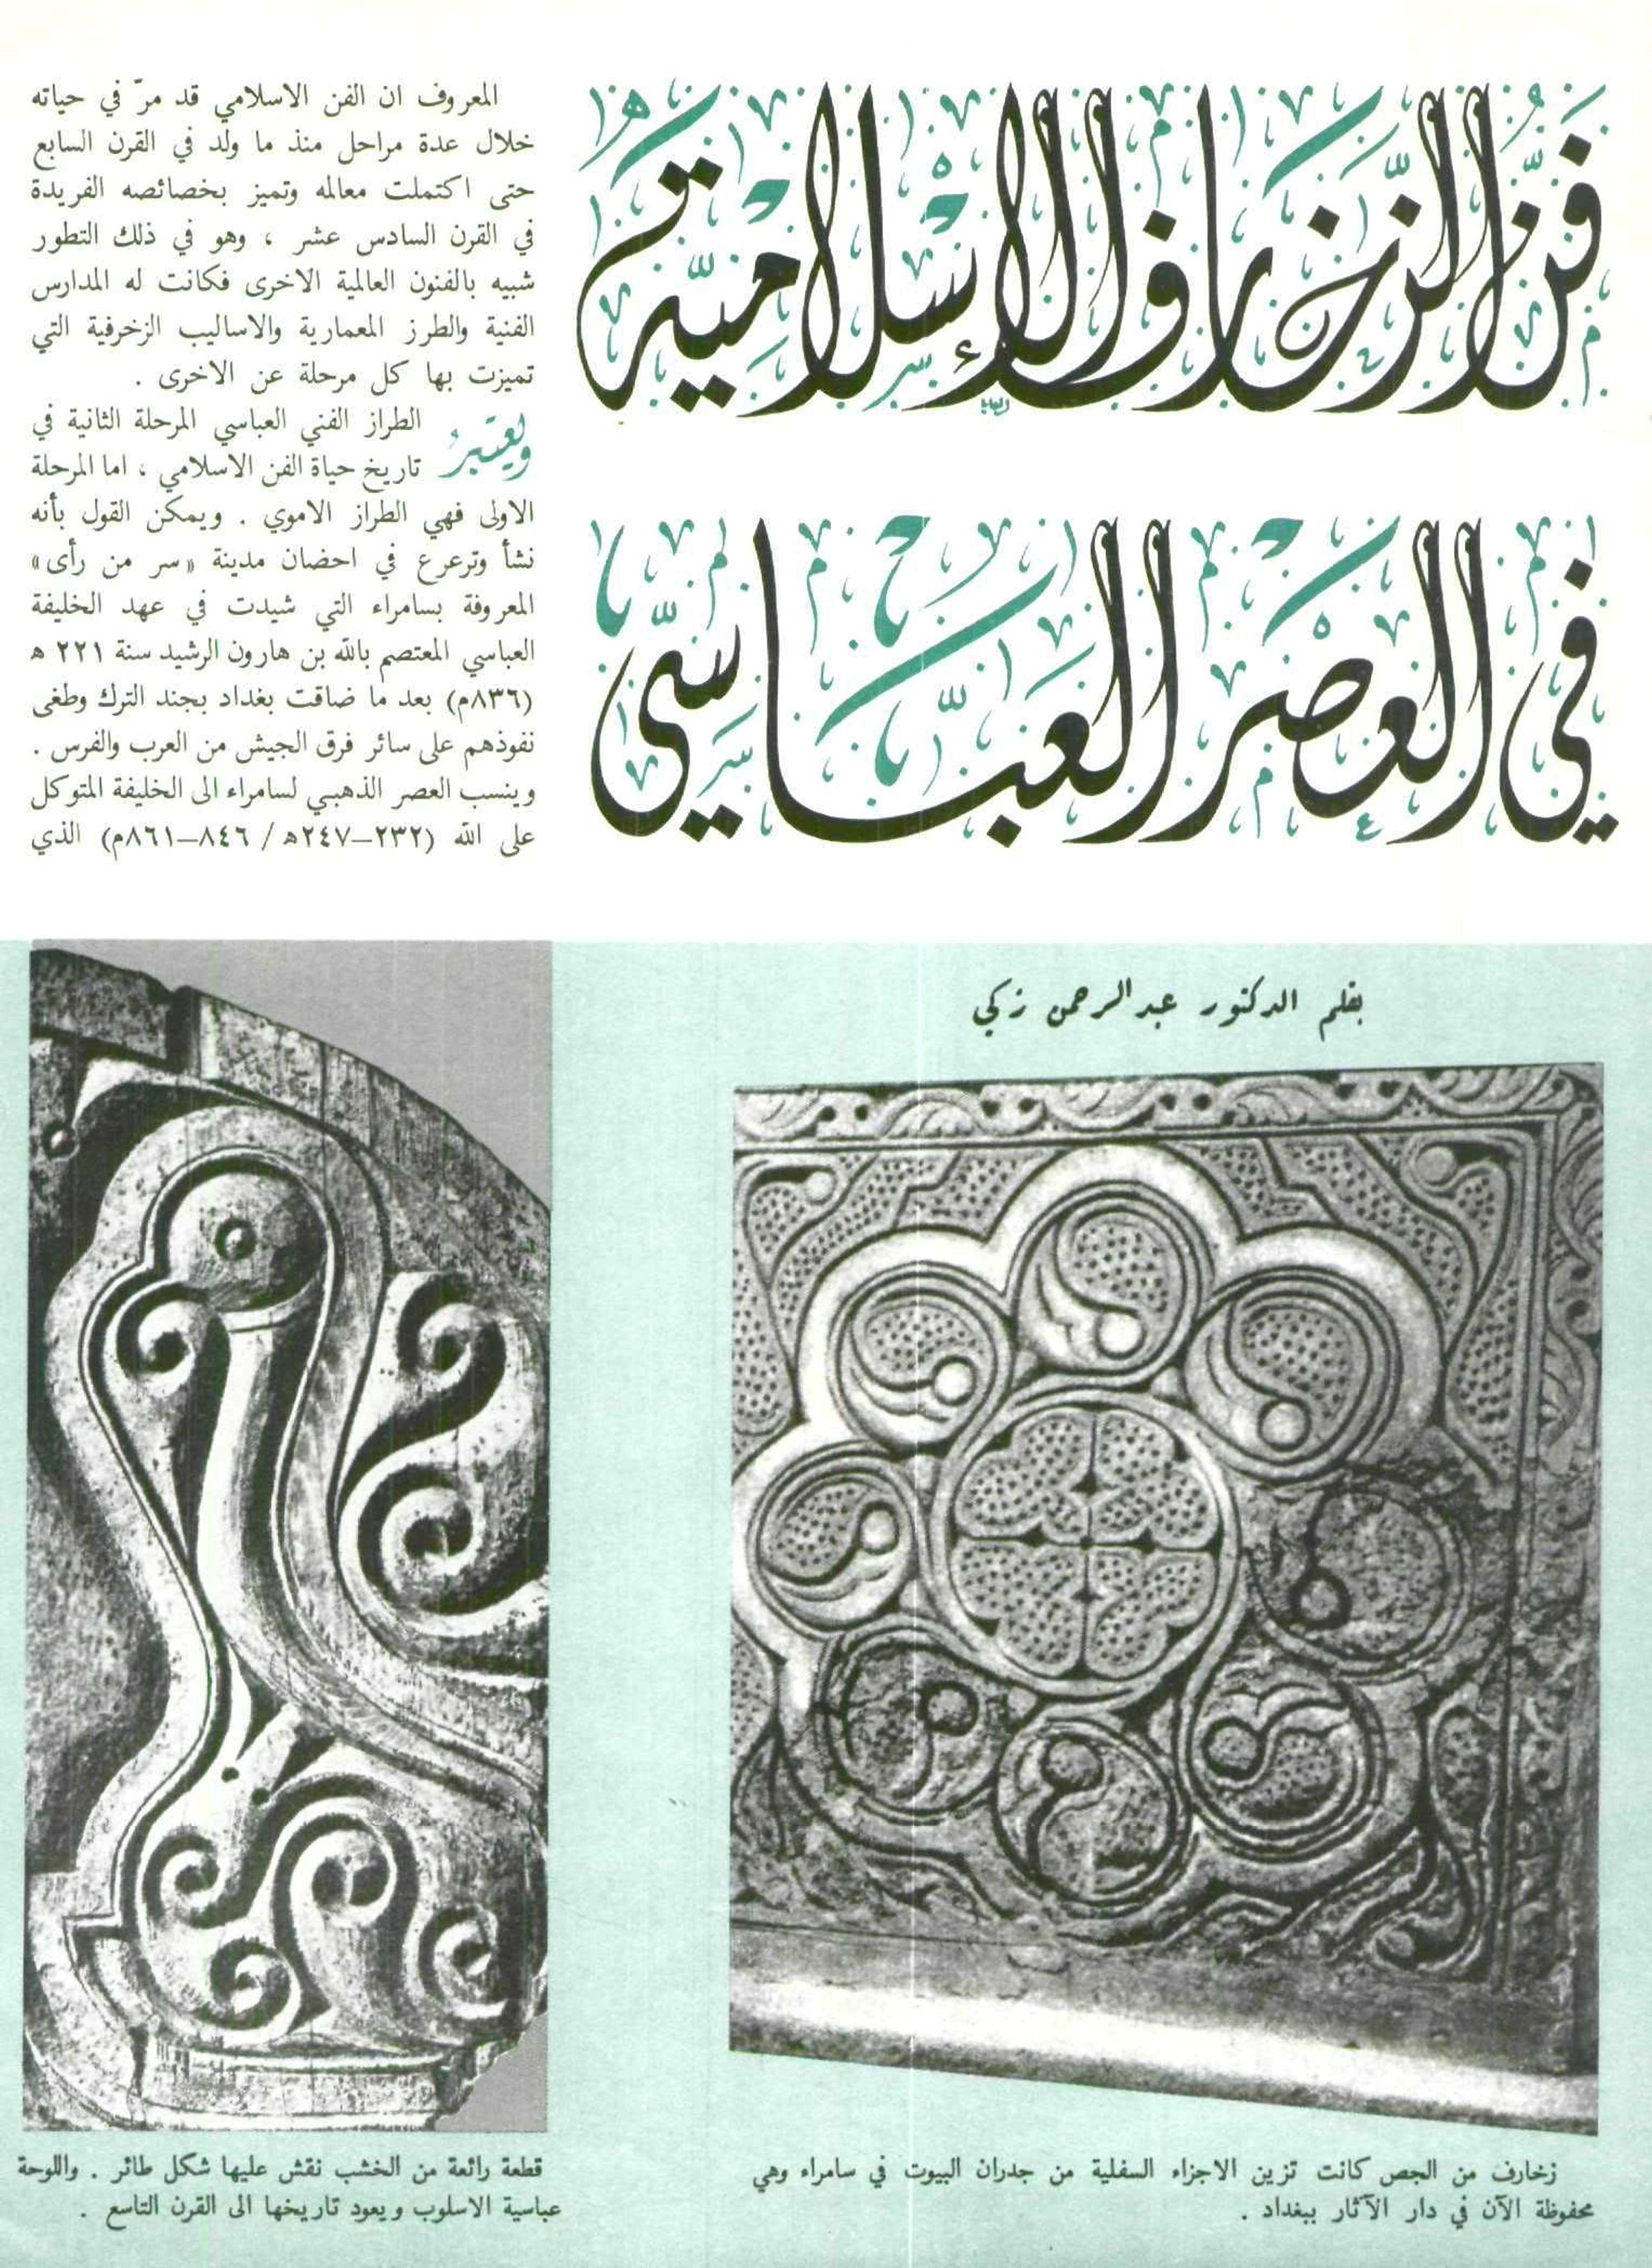 فَنُّ الزَّخَارِفِ الإِسْلَامِيَّةِ
فِي العَصْرِ العَبَّاسِيّ
المعروف ان الفن الاسلامي قد مرّ في حياته
خلال عدة مراحل منذ ما ولد في القرن السابع
حتى اكتملت معالمه وتميز بخصائصه الفريدة
في القرن السادس عشر ، وهو في ذلك التطور
شبيه بالفنون العالمية الاخرى فكانت له المدارس
الفنية والطرز المعمارية والاساليب الزخرفية التي
تميزت بها كل مرحلة عن الاخرى .
ويعتبرُ الطراز الفني العباسي المرحلة الثانية في
تاريخ حياة الفن الاسلامي ، اما المرحلة
الاولى فهي الطراز الاموي . ويمكن القول بأنه
نشأ وترعرع في احضان مدينة «سر من رأى»
المعروفة بسامراء التي شيدت في عهد الخليفة
العباسي المعتصم بالله بن هارون الرشيد سنة ٢٢١ ه
(٨٣٦م) بعد ما ضاقت بغداد بجند الترك وطغى
نفوذهم على سائر فرق الجيش من العرب والفرس .
وينسب العصر الذهبي لسامراء الى الخليفة المتوكل
على الله (٢٣٢–٢٤٧ه / ٨٤٦–٨٦١م) الذي
بقلم الدكتور عبد الرحمن زكي
زخارف من الجص كانت تزين الاجزاء السفلية من جدران البيوت في سامراء وهي
محفوظة الآن في دار الآثار ببغداد .
قطعة رائعة من الخشب نقش عليها شكل طائر . واللوحة
عباسية الاسلوب ويعود تاريخها الى القرن التاسع .